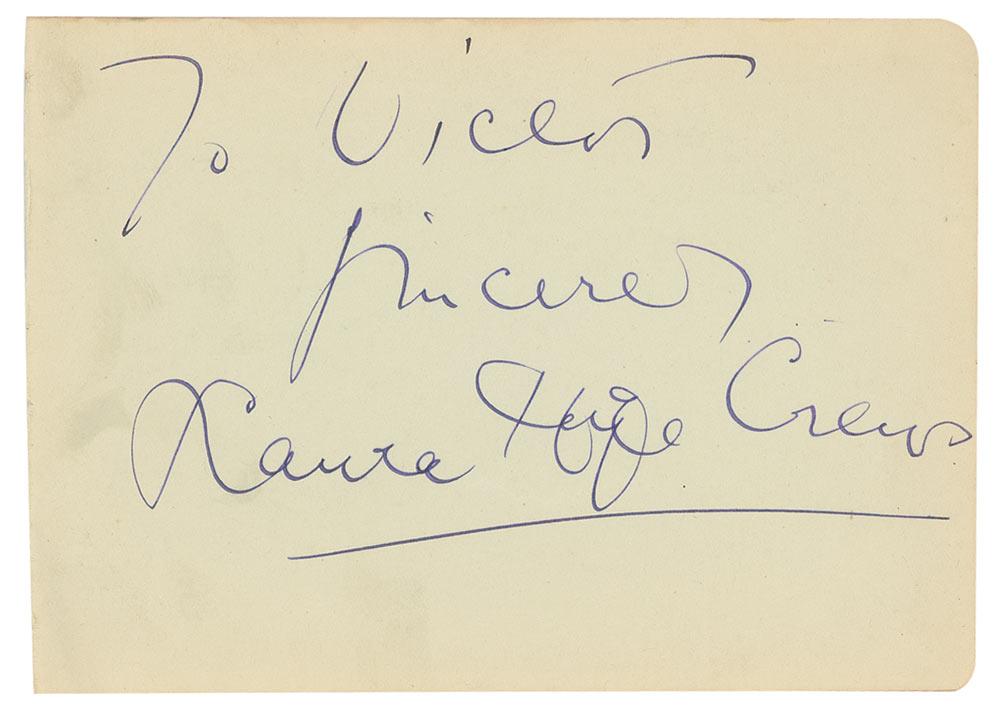 To Victor
Sincerely
Laura Hope Crews